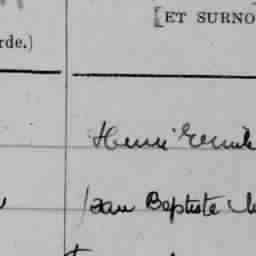 [ET SURNO
rde.)
Henri Emile
Jean Baptiste